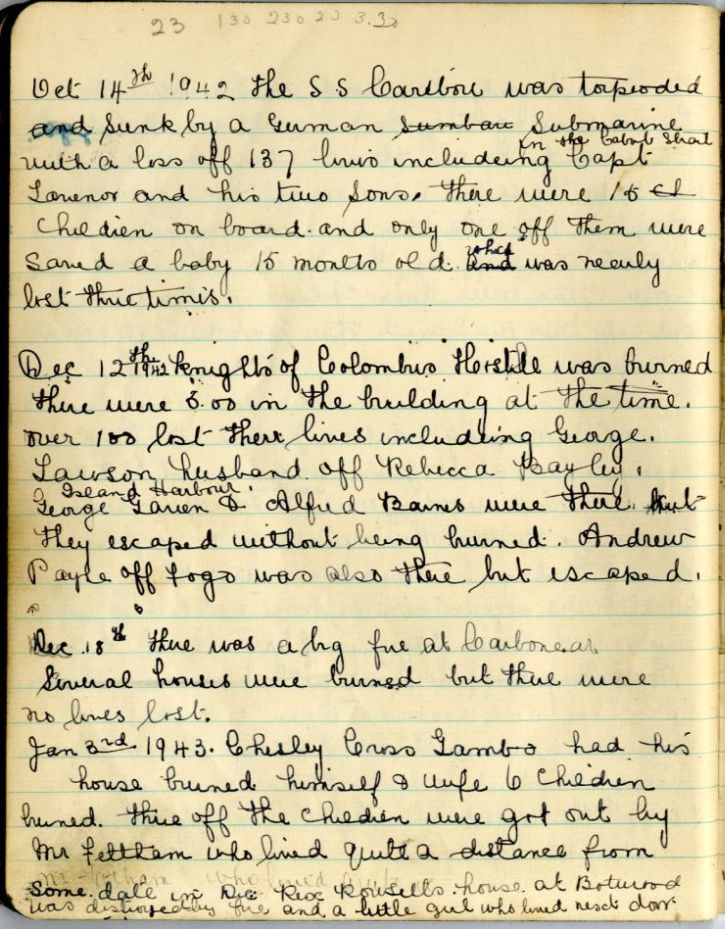 23 130 230 23 3.30
Oct 14th 1942 the S S Caribou was torpeoded
and Sunk by a German Sumbau Submarine
in the Cabot Strait
with a loss off 137 lives includeing Capt
Tavenor and his two Sons. there were 15 ch
Children on board. and only one off them were
Saved a baby 15 months old. and who had was nearly
lost three times.
Dec 12th 1942 Knights of Colombus Hostile was burned
there were 5.00 in the building at the time.
over 100 lost there lives includeing George.
Lawson husband off Rebecca Bayley.
Island Harbour.
George & Alfred Barnes were there. but
they escaped without being burned. Andrew
Payle off Fogo was also there but escaped.
Dec. 18th there was a big fire at Carbonear
Several houses were burned but there were
no lives lost.
Jan 3rd 1943. Chesley Cross Gambo had his
house burned himself & wife 6 Children
burned. three off the Children were got out by
Mr Feltham who lived quite a distance from
Mr Feltham who lived
Some. date in Dec Rex Rousells house. at Botwood
was distroyed by fire and a little girl who lived next door